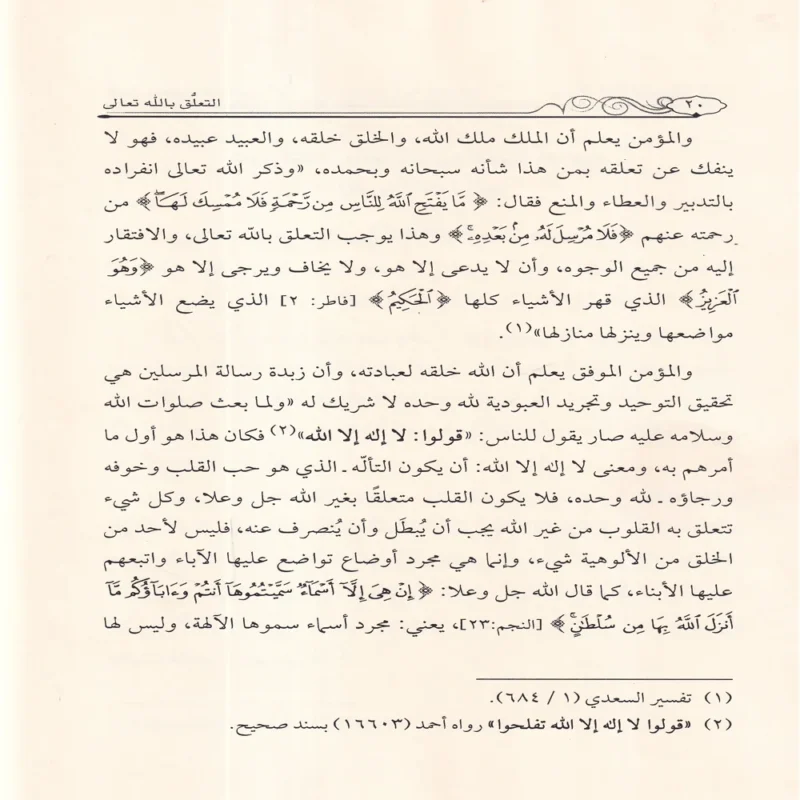 ٢٠ التعلُّق بالله تعالى
والمؤمن يعلم أن الملك ملك الله، والخلق خلقه، والعبيد عبيده، فهو لا
ينفك عن تعلقه بمن هذا شأنه سبحانه وبحمده، «وذكر الله تعالى انفراده
بالتدبير والعطاء والمنع فقال: ﴿ مَّا يَفْتَحِ ٱللَّهُ لِلنَّاسِ مِن رَّحْمَةٍ فَلَا مُمْسِكَ لَهَا ﴾ من
رحمته عنهم ﴿ فَلَا مُرْسِلَ لَهُۥ مِنۢ بَعْدِهِۦ ﴾ وهذا يوجب التعلق بالله تعالى، والافتقار
إليه من جميع الوجوه، وأن لا يدعى إلا هو، ولا يخاف ويرجى إلا هو ﴿ وَهُوَ
ٱلْعَزِيزُ ﴾ الذي قهر الأشياء كلها ﴿ ٱلْحَكِيمُ ﴾ [فاطر: ٢] الذي يضع الأشياء
مواضعها وينزلها منازلها»(١).
والمؤمن الموفق يعلم أن الله خلقه لعبادته، وأن زبدة رسالة المرسلين هي
تحقيق التوحيد وتجريد العبودية لله وحده لا شريك له «ولما بعث صلوات الله
وسلامه عليه صار يقول للناس: «قولوا: لا إله إلا الله»(٢) فكان هذا هو أول ما
أمرهم به، ومعنى لا إله إلا الله: أن يكون التألّه ـ الذي هو حب القلب وخوفه
ورجاؤه ـ لله وحده، فلا يكون القلب متعلقًا بغير الله جل وعلا، وكل شيء
تتعلق به القلوب من غير الله يجب أن يُبطَل وأن يُنصرف عنه، فليس لأحد من
الخلق من الألوهية شيء، وإنما هي مجرد أوضاع تواضع عليها الآباء واتبعهم
عليها الأبناء، كما قال الله جل وعلا: ﴿ إِنْ هِىَ إِلَّآ أَسْمَآءٌ سَمَّيْتُمُوهَآ أَنتُمْ وَءَابَآؤُكُم مَّآ
أَنزَلَ ٱللَّهُ بِهَا مِن سُلْطَٰنٍ ﴾ [النجم:٢٣]، يعني: مجرد أسماء سموها الآلهة، وليس لها
(١) تفسير السعدي (١ / ٦٨٤).
(٢) «قولوا لا إله إلا الله تفلحوا» رواه أحمد (١٦٦٠٣) بسند صحيح.